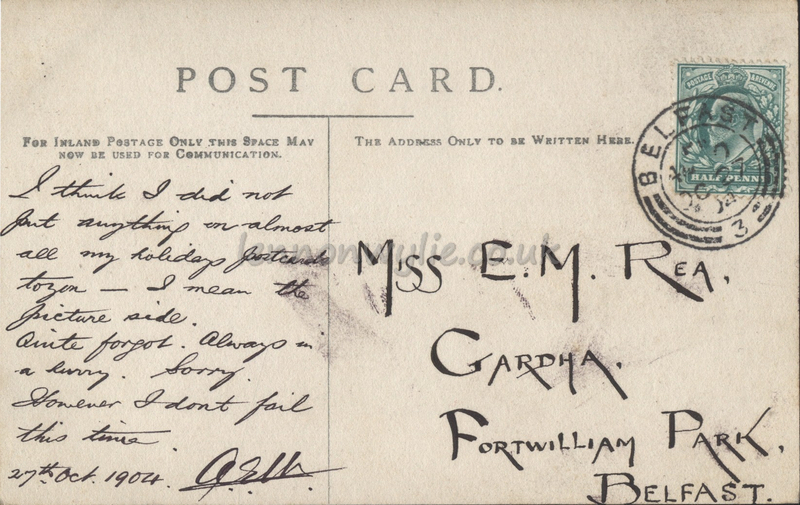 POST CARD.
FOR INLAND POSTAGE ONLY THIS SPACE MAY
NOW BE USED FOR COMMUNICATION.
THE ADDRESS ONLY TO BE WRITTEN HERE.
POSTAGE & REVENUE
HALFPENNY
BELFAST
OC 27
04
3
I think I did not
put anything on almost
all my holidays postcards
to you — I mean the
picture side.
Quite forgot. Always in
a hurry. Sorry.
However I dont fail
this time
27th Oct. 1904.
MISS E. M. REA,
GARDHA,
FORTWILLIAM PARK,
BELFAST.
lennonwylie.co.uk